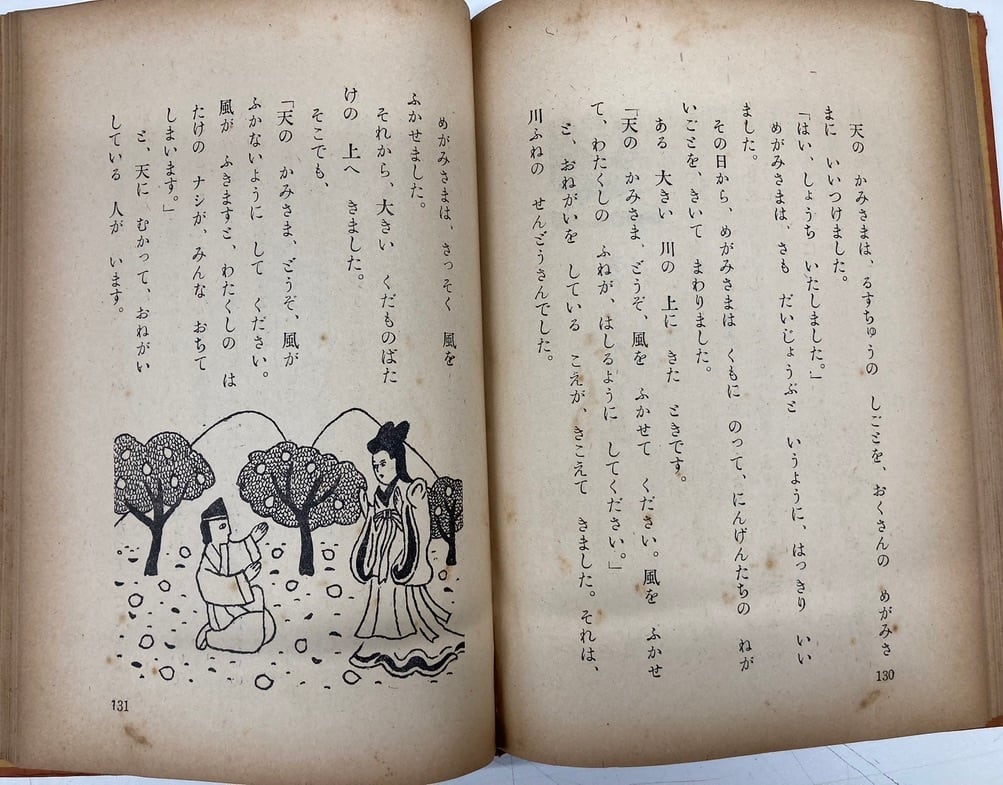 天の かみさまは、るすちゅうの しごとを、おくさんの めがみさ
まに いいつけました。
「はい、しょうち いたしました。」
めがみさまは、さも だいじょうぶと いうように、はっきり いい
ました。
その日から、めがみさまは くもに のって、にんげんたちの ねが
いごとを、きいて まわりました。
ある 大きい 川の 上に きた ときです。
「天の かみさま、どうぞ、風を ふかせて ください。風を ふかせ
て、わたくしの ふねが、はしるように してください。」
と、おねがいを している こえが、きこえて きました。それは、
川ふねの せんどうさんでした。
130
めがみさまは、さっそく 風を
ふかせました。
それから、大きい くだものばた
けの 上へ きました。
そこでも、
「天の かみさま、どうぞ、風が
ふかないように して ください。
風が ふきますと、わたくしの は
たけの ナシが、みんな おちて
しまいます。」
と、天に むかって、おねがい
している 人が います。
131